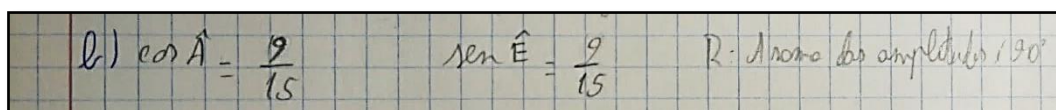 b) cos Â = 9/15 sen Ê = 9/15 R: A soma das amplitudes é 90°